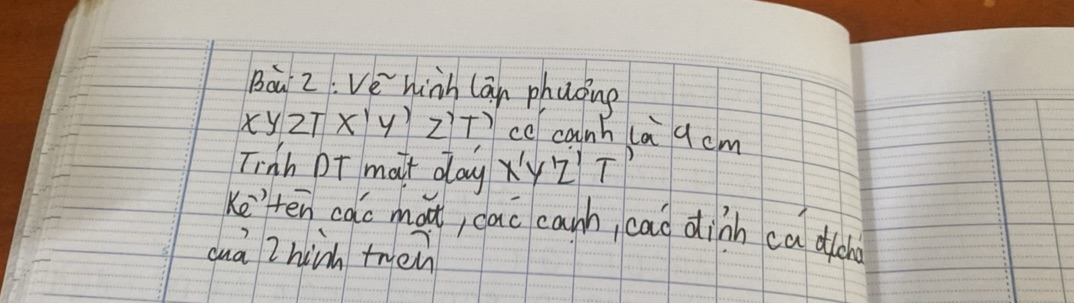 Bài 2: Vẽ hình lập phương
XYZT X'Y'Z'T' có cạnh là 9cm
Tính DT mặt đáy X'Y'Z'T'
Kể tên các mặt, các cạnh, các đỉnh cá đ/chéo
của 2 hình trên